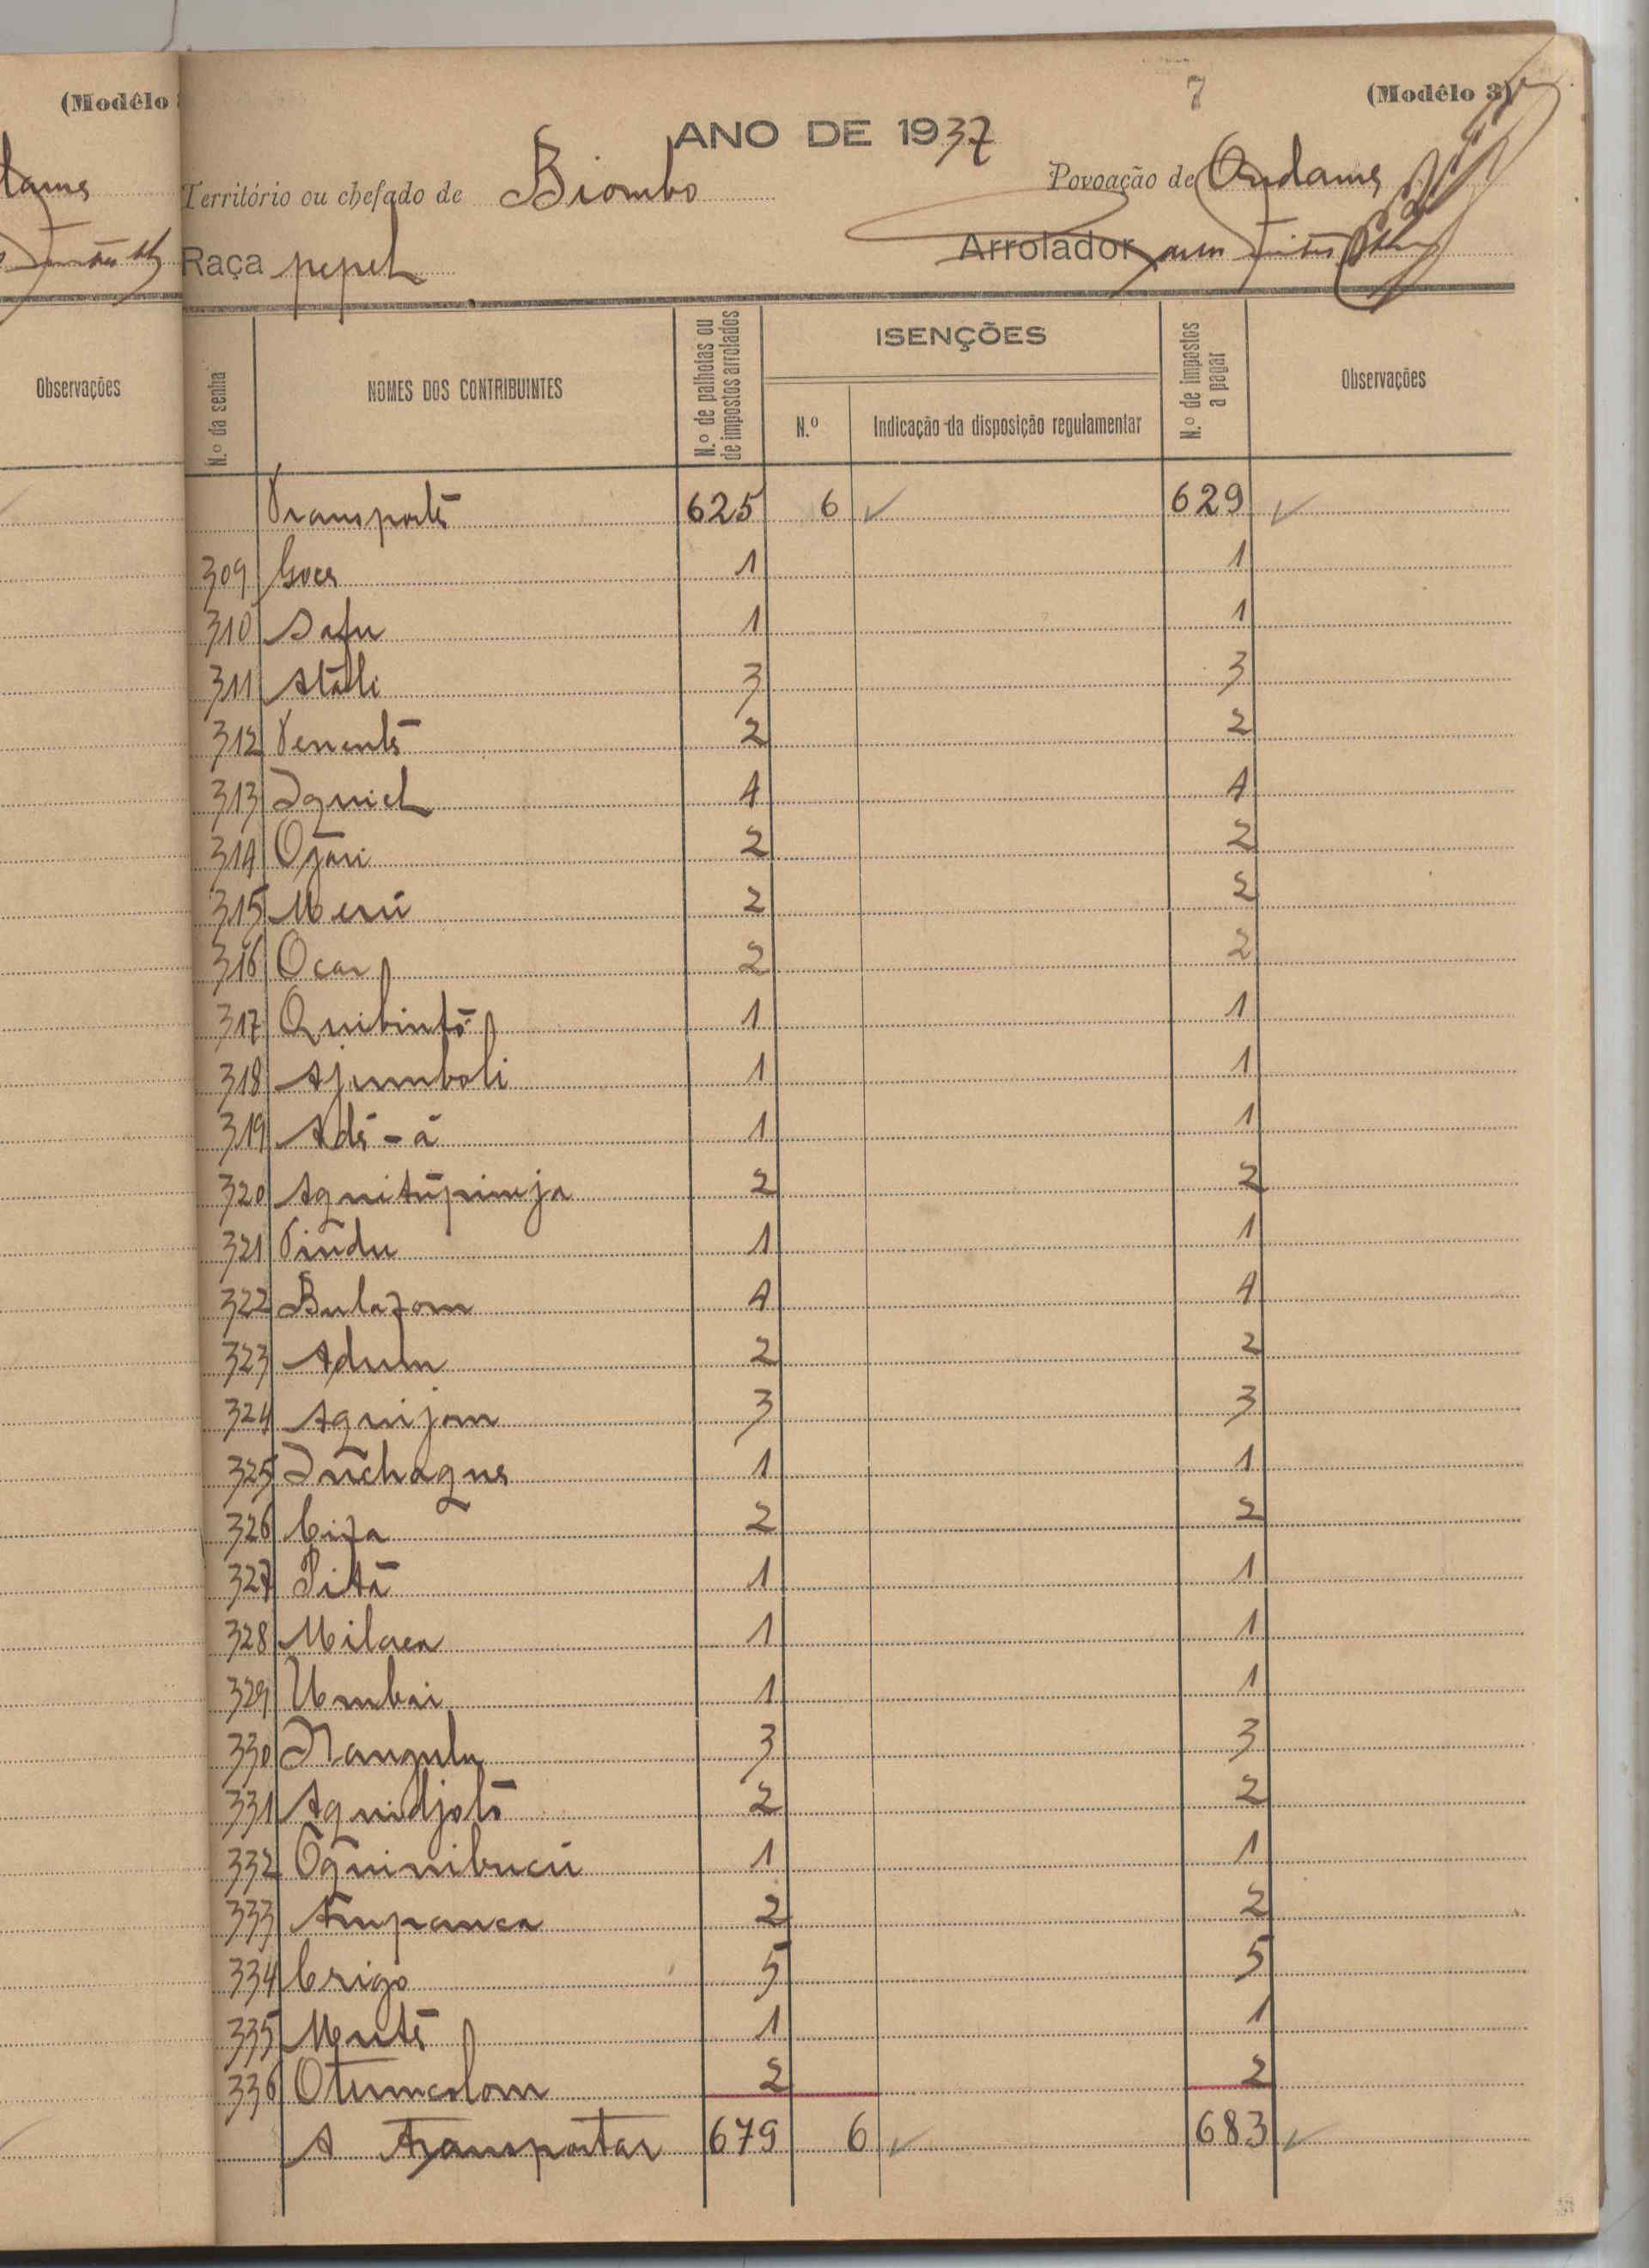 (Modêlo
7
(Modêlo 3)
ANO DE 1937
Território ou chefado de Biombo
Povoação de Ondame
Raça pepel
Arrolador
Observações
N.º da senha
NOMES DOS CONTRIBUINTES
N.º de palhotas ou de impostos arrolados
ISENÇÕES
N.º
Indicação da disposição regulamentar
N.º de impostos a pagar
Observações
Transporte 625 6 ✓ 629 ✓
309 1 1
310 Safu 1 1
311 3 3
312 Tenente 2 2
313 Iquiel 4 4
314 Ojari 2 2
315 2 2
316 Ocar 2 2
317 Quibintó 1 1
318 Ajumboli 1 1
319 Adé-á 1 1
320 Aquitúpimja 2 2
321 Tindu 1 1
322 Bulazom 4 4
323 Adulu 2 2
324 Aquijom 3 3
325 Inchague 1 1
326 2 2
327 Pitá 1 1
328 1 1
329 Umbai 1 1
330 Nangulu 3 3
331 Aquidjoló 2 2
332 Oquinibucú 1 1
333 2 2
334 5 5
335 1 1
336 2 2
A Transportar 679 6 ✓ 683 ✓